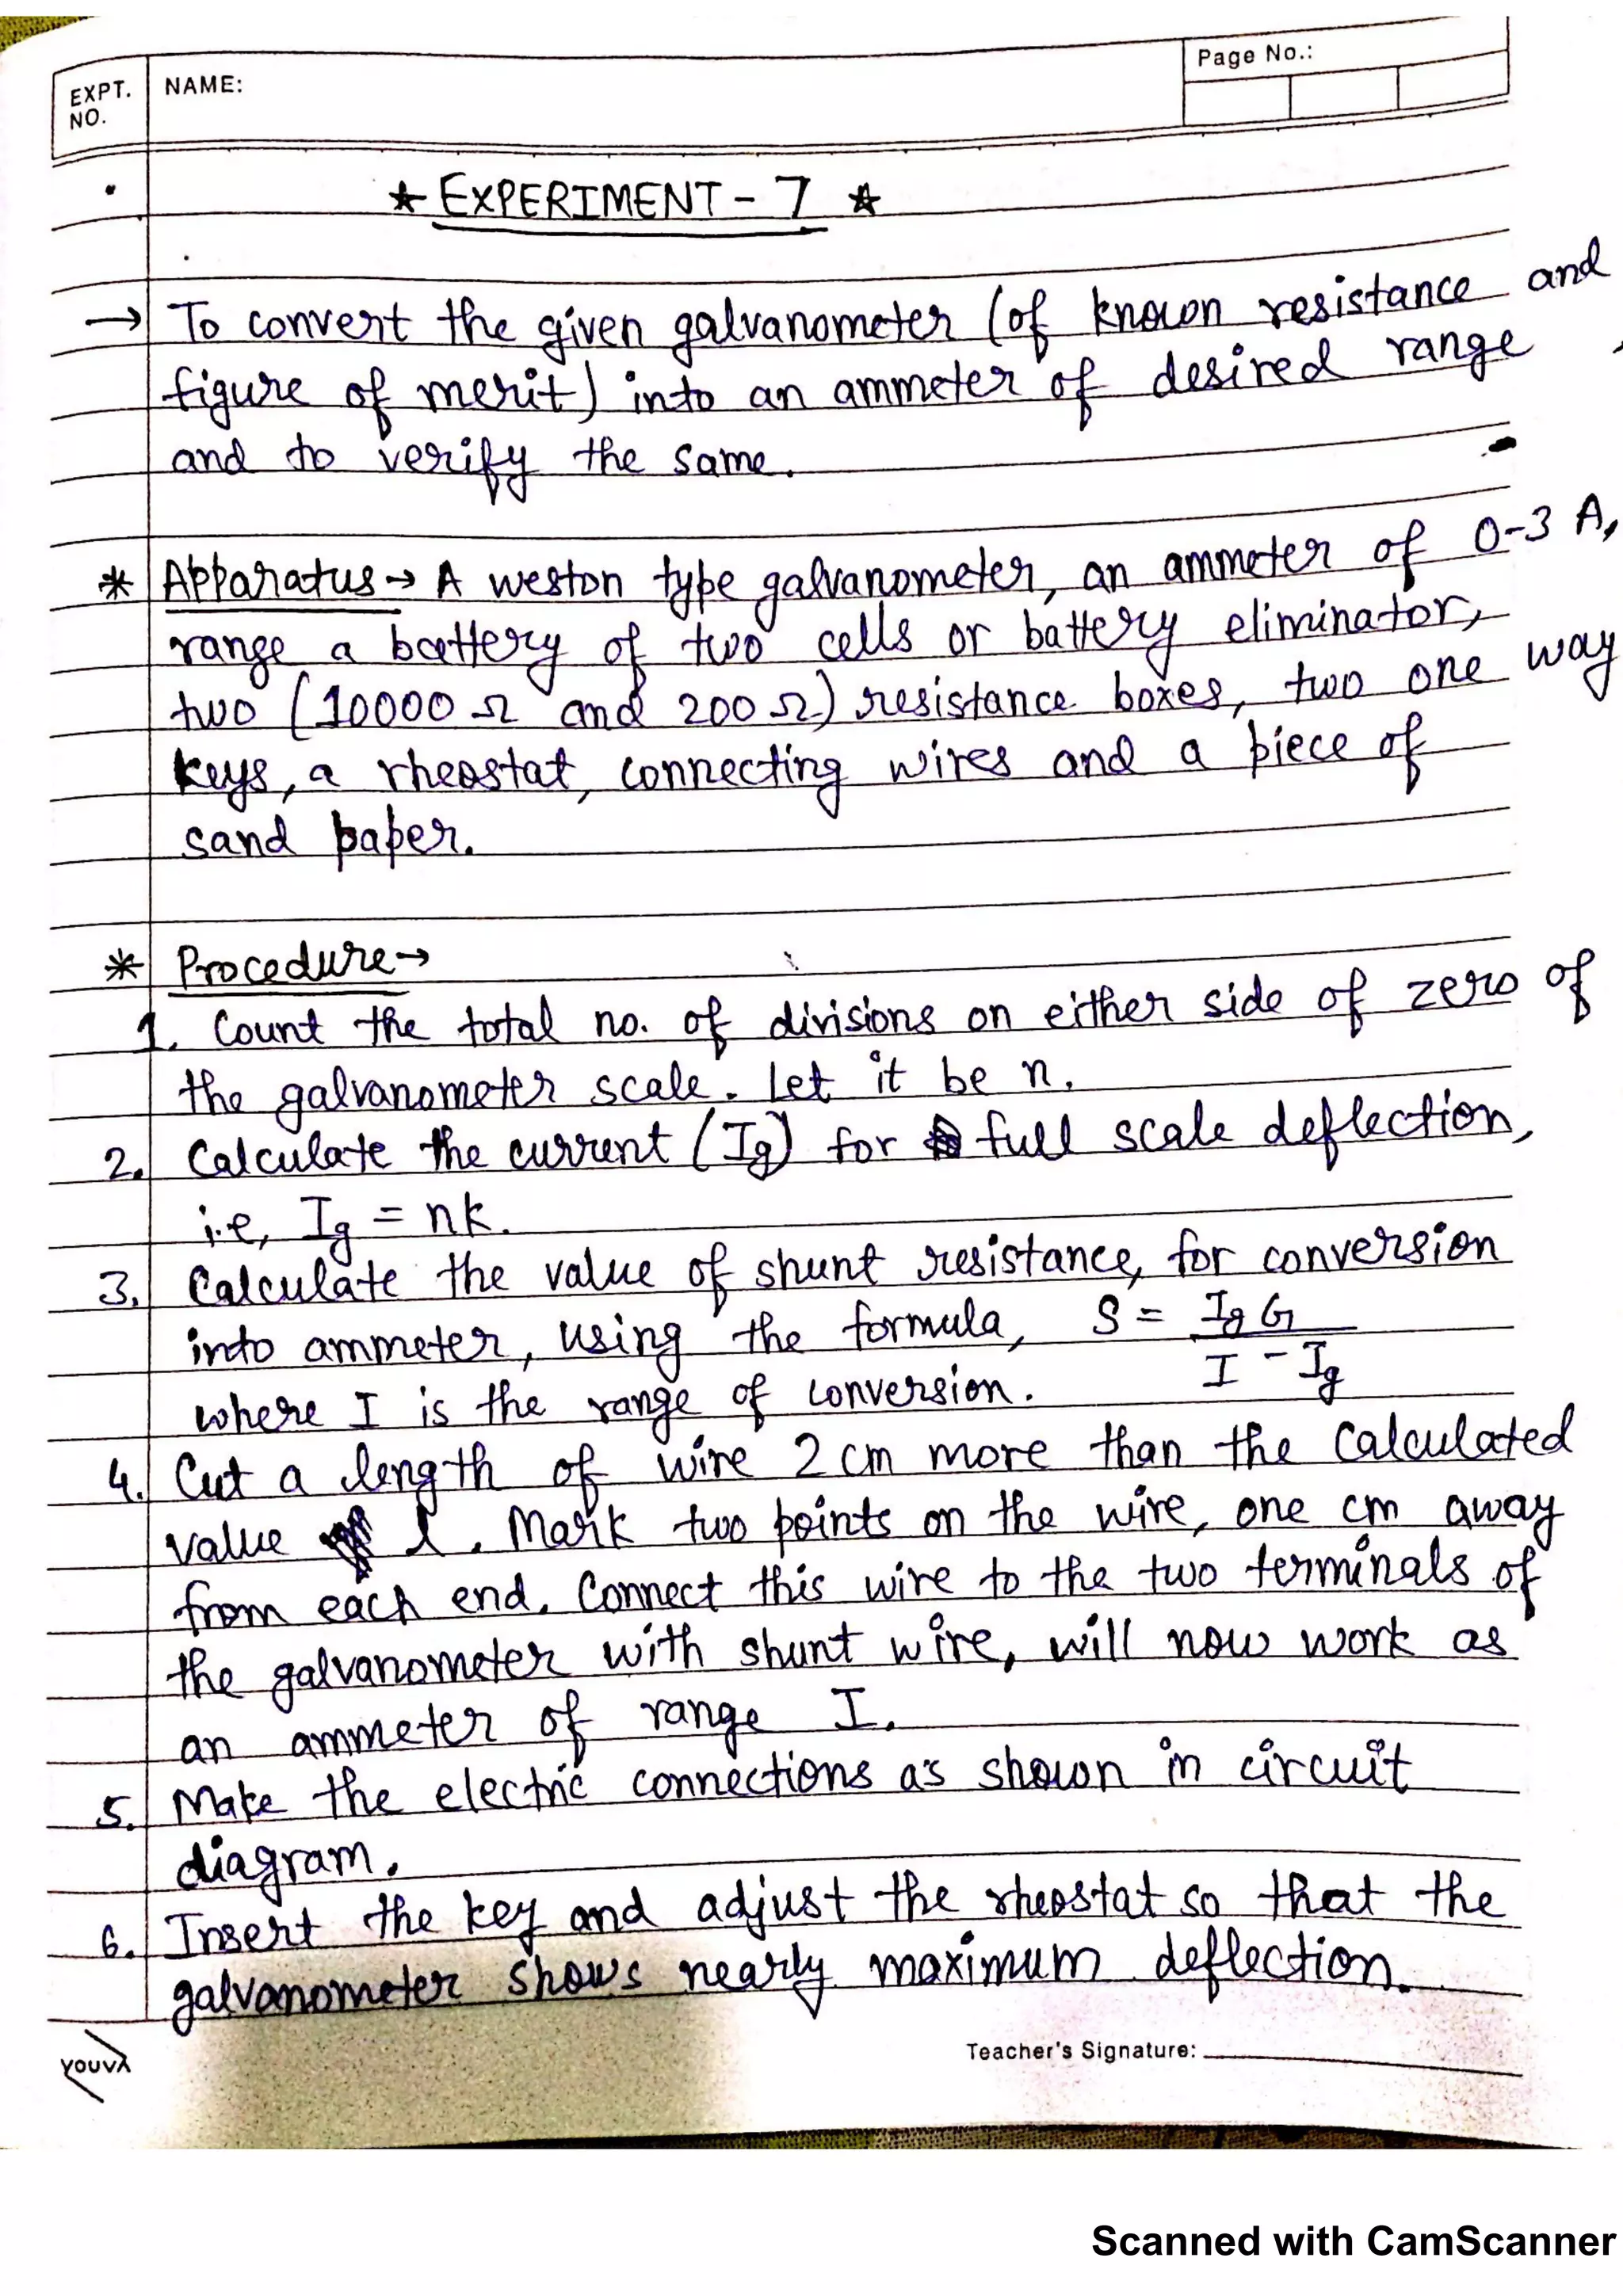 EXPT. NO.
NAME:
Page No.:
* EXPERIMENT - 7 *
→ To convert the given galvanometer (of known resistance and
figure of merit) into an ammeter of desired range
and to verify the same.
* Apparatus → A weston type galvanometer, an ammeter of 0-3 A,
range a battery of two cells or battery eliminator,
two (10000 Ω and 200 Ω) resistance boxes, two one way
keys, a rheostat, connecting wires and a piece of
sand paper.
* Procedure →
1. Count the total no. of divisions on either side of zero of
the galvanometer scale. Let it be n.
2. Calculate the current (Ig) for full scale deflection,
i.e, Ig = nk.
3. Calculate the value of shunt resistance, for conversion
into ammeter, using the formula, S = Ig G / I - Ig
where I is the range of conversion.
4. Cut a length of wire 2 cm more than the calculated
value l. Mark two points on the wire, one cm away
from each end. Connect this wire to the two terminals of
the galvanometer with shunt wire, will now work as
an ammeter of range I.
5. Make the electric connections as shown in circuit
diagram.
6. Insert the key and adjust the rheostat so that the
galvanometer shows nearly maximum deflection.
YOUVA
Teacher's Signature:
Scanned with CamScanner